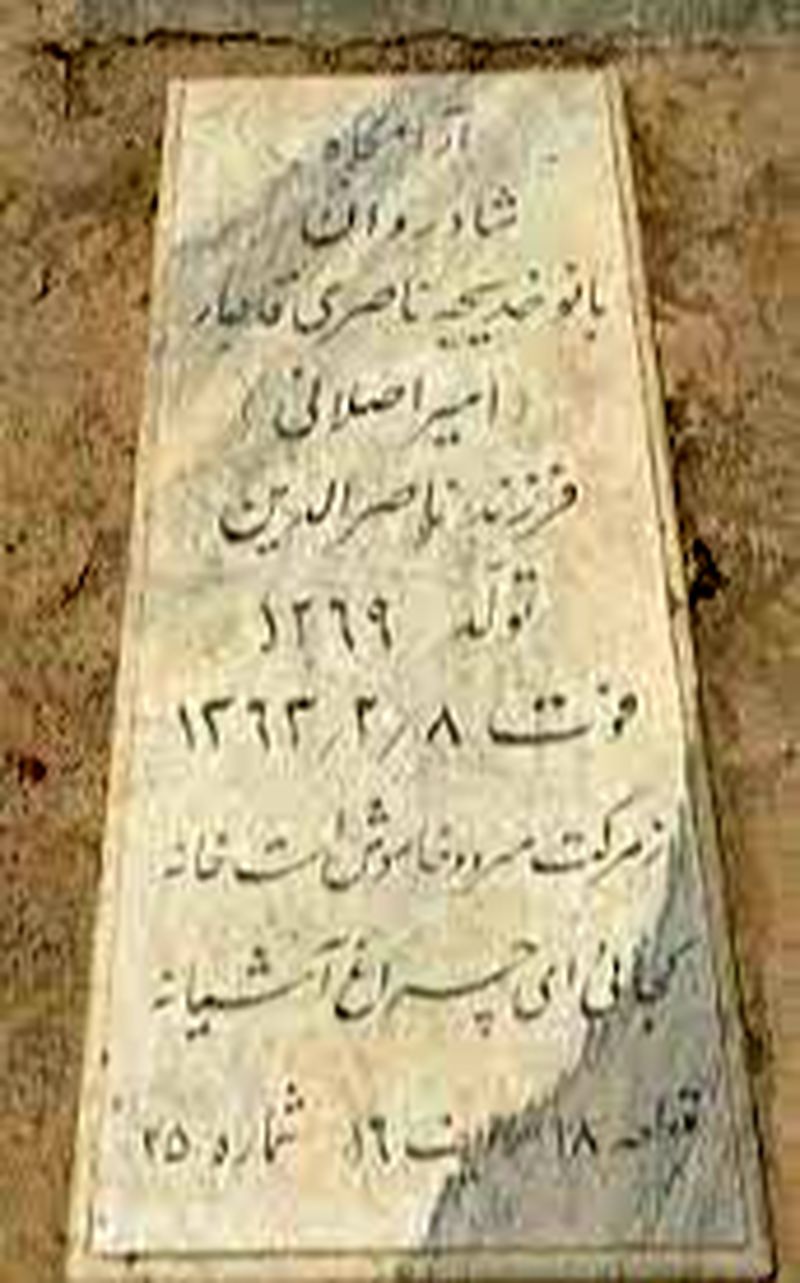 آرامگاه
شادروان
بانو خدیجه ناصری قاجار
(امیراصلانی)
فرزند ناصرالدین
تولّد ۱۲۶۹
فوت ۱۳۶۳/۲/۸
زمرگت سرد و خاموش است خانه
کجائی ای چراغ آشیانه
قطعه ۱۸ ردیف ۱۶ شماره ۲۵